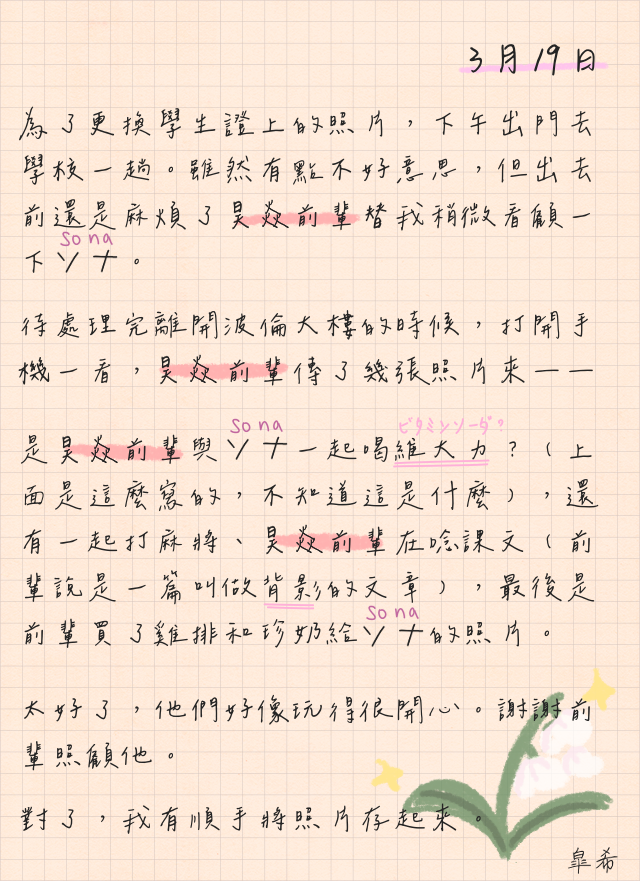 3月19日
為了更換學生證上的照片，下午出門去
學校一趟。雖然有點不好意思，但出去
前還是麻煩了昊焱前輩替我稍微看顧一
sona
下ソナ。
待處理完離開波倫大樓的時候，打開手
機一看，昊焱前輩傳了幾張照片來——
sona
ビタミンソーダ?
是昊焱前輩與ソナ一起喝維大力？（上
面是這麼寫的，不知道這是什麼），還
有一起打麻將、昊焱前輩在唸課文（前
輩說是一篇叫做背影的文章），最後是
sona
前輩買了雞排和珍奶給ソナ的照片。
太好了，他們好像玩得很開心。謝謝前
輩照顧他。
對了，我有順手將照片存起來。
皐希